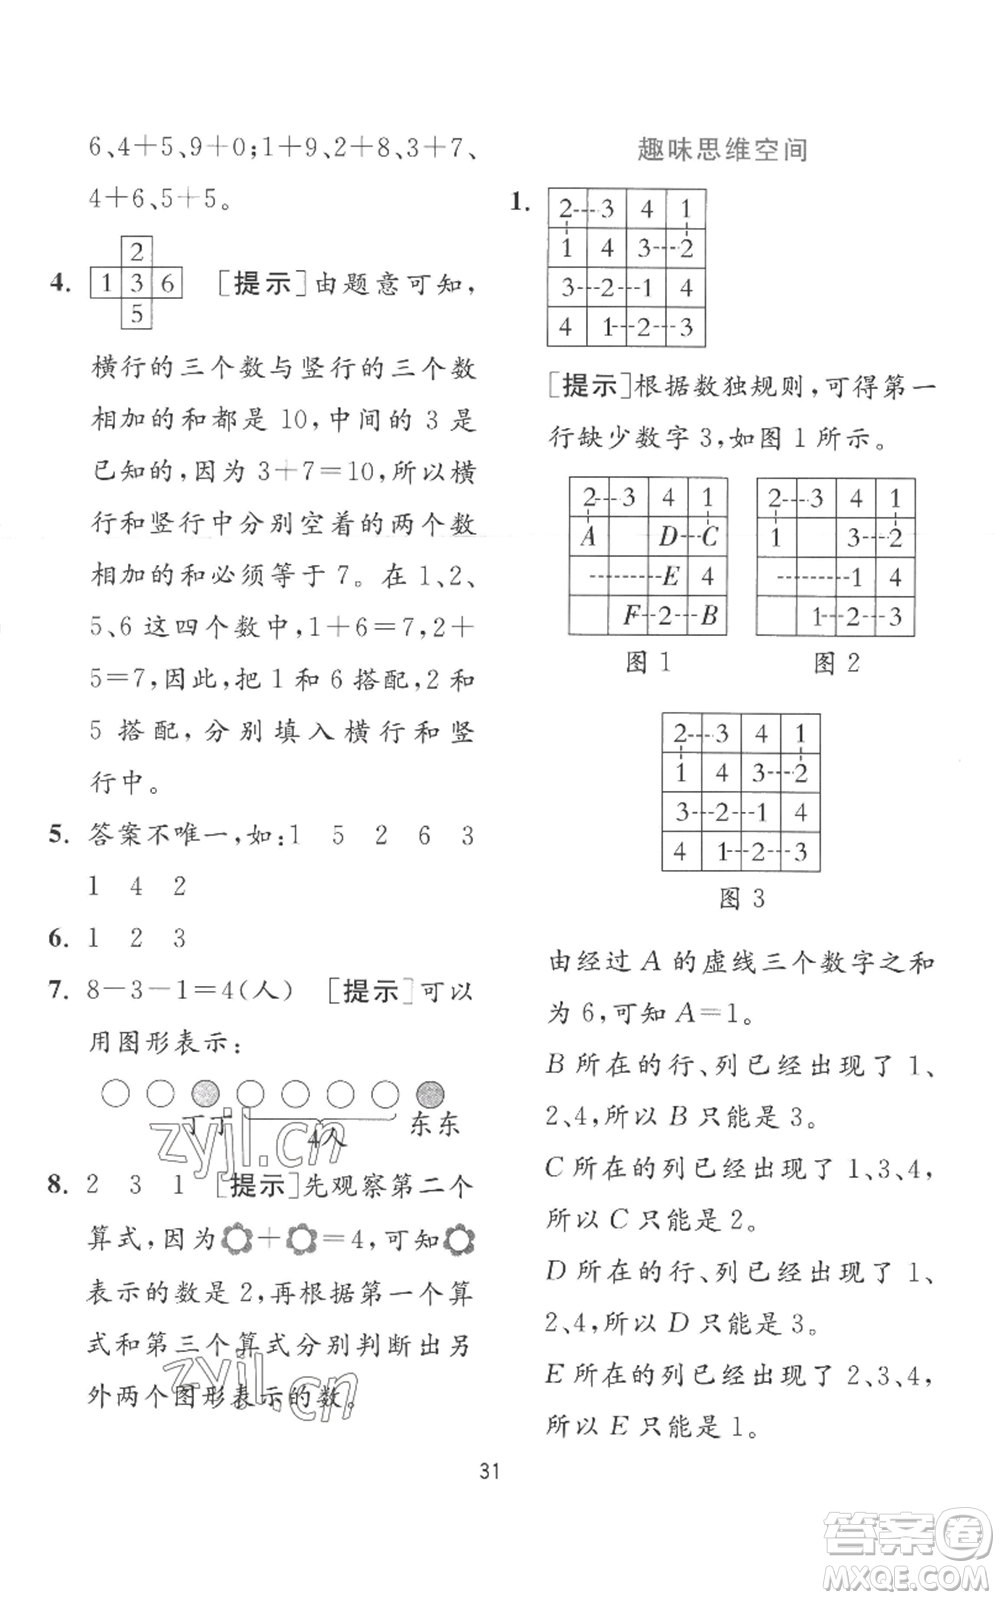 6、4+5、9+0;1+9、2+8、3+7、
4+6、5+5。
4.
2
1 3 6
5
[提示]由题意可知，
横行的三个数与竖行的三个数
相加的和都是 10，中间的 3 是
已知的，因为 3+7=10，所以横
行和竖行中分别空着的两个数
相加的和必须等于 7。在 1、2、
5、6 这四个数中，1+6=7，2+
5=7，因此，把 1 和 6 搭配，2 和
5 搭配，分别填入横行和竖
行中。
5. 答案不唯一，如：1 5 2 6 3
1 4 2
6. 1 2 3
7. 8-3-1=4(人) [提示]可以
用图形表示：
丁丁 4人 东东
8. 2 3 1 [提示]先观察第二个
算式，因为 + =4，可知
表示的数是 2，再根据第一个算
式和第三个算式分别判断出另
外两个图形表示的数。
趣味思维空间
1.
2 3 4 1
1 4 3 2
3 2 1 4
4 1 2 3
[提示]根据数独规则，可得第一
行缺少数字 3，如图 1 所示。
2 3 4 1
A D C
E 4
F 2 B
图 1
2 3 4 1
1 3 2
1 4
1 2 3
图 2
2 3 4 1
1 4 3 2
3 2 1 4
4 1 2 3
图 3
由经过 A 的虚线三个数字之和
为 6，可知 A=1。
B 所在的行、列已经出现了 1、
2、4，所以 B 只能是 3。
C 所在的列已经出现了 1、3、4，
所以 C 只能是 2。
D 所在的行、列已经出现了 1、
2、4，所以 D 只能是 3。
E 所在的列已经出现了 2、3、4，
所以 E 只能是 1。
31
zyjl.cn
zyjl.cn
答案卷
MXQE.COM